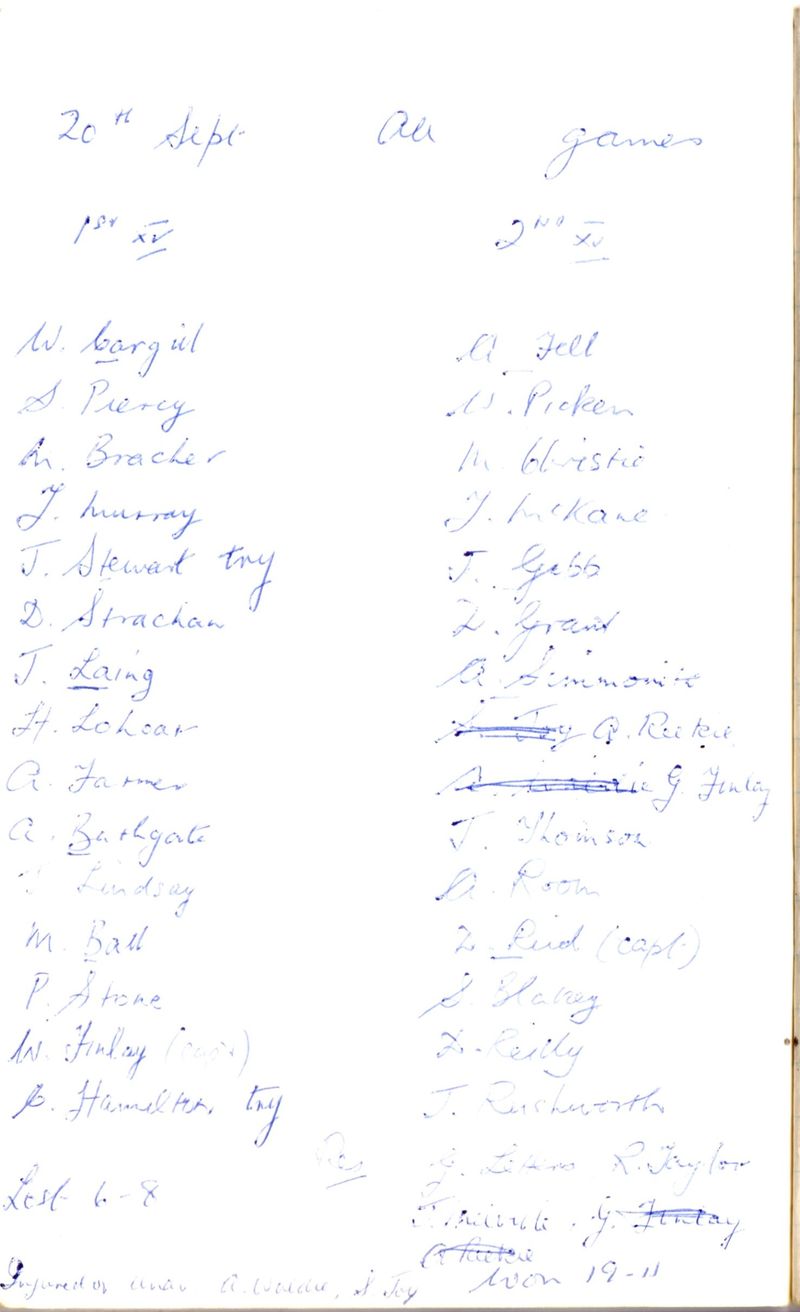 20th Sept All games
1st XV 2nd XV
W. Cargill A. Fell
S. Piercy W. Picken
M. Bracher M. Christie
J. Murray J. McKane
J. Stewart try J. Gebb
D. Strachan D. Grant
J. Laing A. Simmonite
H. Lohoar S. Joy A. Reekie
A. Farmer G. Finlay
A. Bathgate J. Thomson
J Lindsay A. Room
M. Ball D. Reid (capt)
P. Stone S. Blakey
W. Finlay (capt) D. Reilly
C. Hamilton try J. Rushworth
Res G. R. Taylor
Lost 6-8 J. Melville. G. Finlay
A Reekie
Injured or A. Waldie, S. Joy Won 19-11